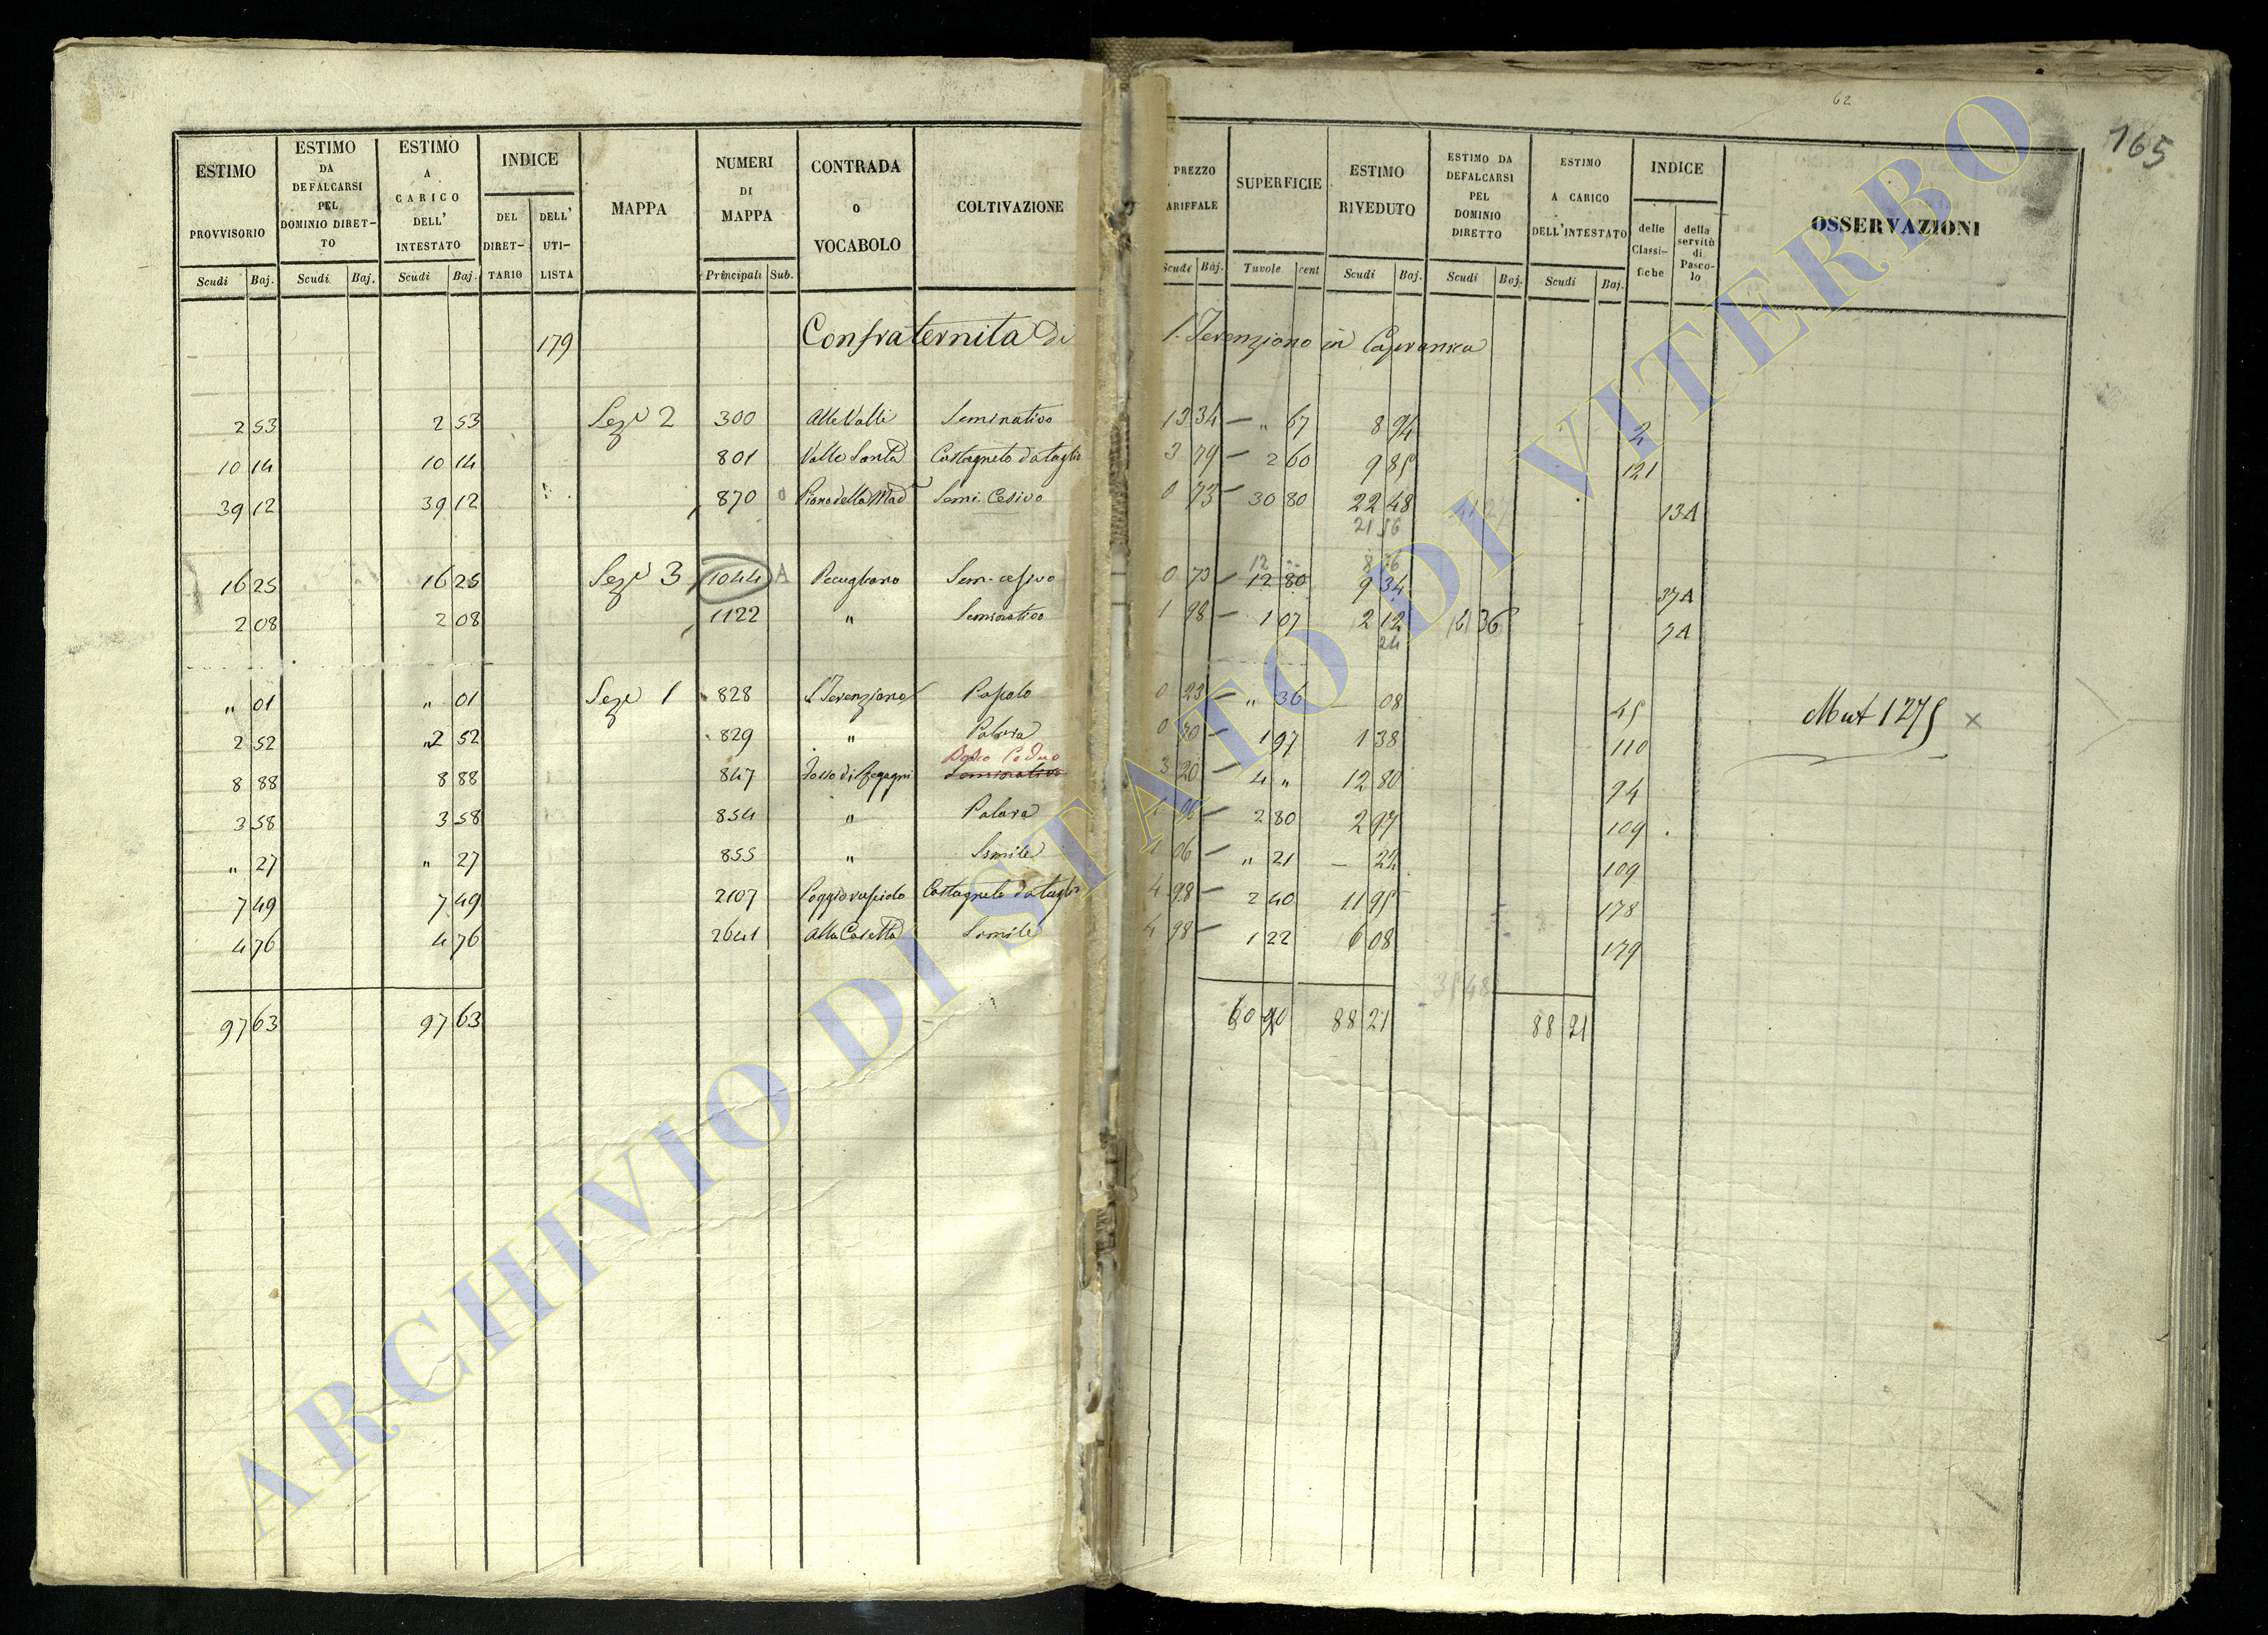 62
165
ESTIMO PROVVISORIO Scudi Baj.
ESTIMO DA DEFALCARSI PEL DOMINIO DIRET-TO Scudi Baj.
ESTIMO A CARICO DELL' INTESTATO Scudi Baj.
INDICE DEL DIRET-TARIO DELL' UTI-LISTA
MAPPA
NUMERI DI MAPPA Principali Sub.
CONTRADA o VOCABOLO
COLTIVAZIONE
PREZZO ARIFFALE Scudi Baj.
SUPERFICIE Tavole cent
ESTIMO RIVEDUTO Scudi Baj.
ESTIMO DA DEFALCARSI PEL DOMINIO DIRETTO Scudi Baj.
ESTIMO A CARICO DELL'INTESTATO Scudi Baj.
INDICE delle Classi-fiche della servitù di Pasco-lo
OSSERVAZIONI
179 Confraternita di S. Terenziano in Capranica
2 53 2 53 Sez. 2 300 Alle Valli Seminativo 13 34 — " 67 8 94 2
10 14 10 14 801 Valle Santa Castagneto da taglio 3 79 — 2 60 9 85 121
39 12 39 12 870 Piano della Mad Semi. Cesivo 0 73 — 30 80 22 48 13A
21 56
12 8 76
16 25 16 25 Sez. 3 1044 A Sem. cesivo 0 73 — 12 80 9 34 37A
2 08 2 08 1122 " Seminativo 1 98 — 1 07 2 12 36 7A
24
" 01 " 01 Sez. 1 828 S. Terenziano Pascolo 0 23 — " 36 — 08 45 Mut 1275 ×
2 52 2 52 829 " Palara 0 70 — 1 97 1 38 110
Bosco Ceduo
8 88 8 88 847 Seminativo 3 20 — 4 " 12 80 94
3 58 3 58 854 " Palara 1 06 — 2 80 2 97 109
" 27 " 27 855 " Simile 1 06 — " 21 — 22 109
7 49 7 49 2107 Castagneto da taglio 4 98 — 2 40 11 95 178
4 76 4 76 2641 Alla Casetta Simile 4 98 — 1 22 6 08 179
31 48
97 63 97 63 60 90 88 21 88 21
ARCHIVIO DI STATO DI VITERBO